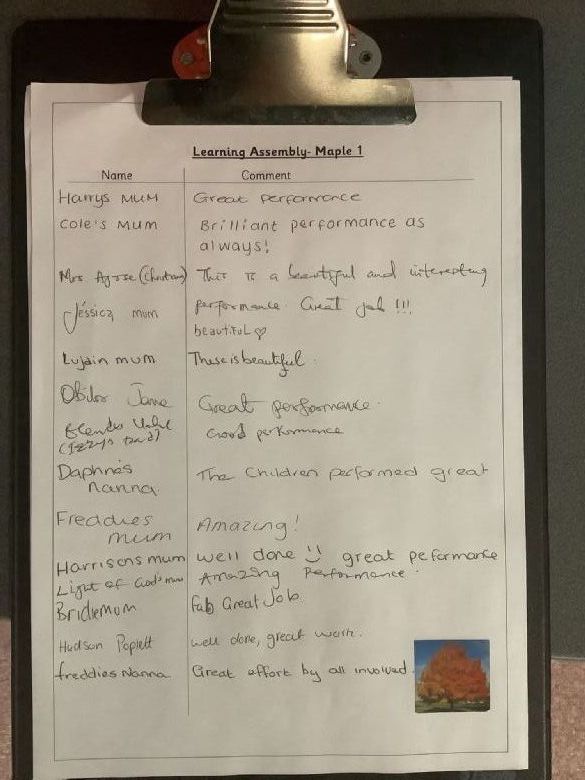 Learning Assembly- Maple 1
Name Comment
Harrys MUM Great performance
Cole's MUM Brilliant performance as
always!
Mrs (Christian) This is a beautiful and interesting
performance. Great job !!!
Jéssica mum
beautiful ♡
Lujain mum These is beautiful.
Jane Great performance.
Good performance
(Izzys Dad)
Daphne's The Children performed great
nanna
Freddies Amazing!
mum
Harrisons mum Well done great peformance
Light of God's mum Amazing Performance.
Bridie mum Fab Great Job.
Hudson well done, great work.
freddies Nanna Great effort by all involved